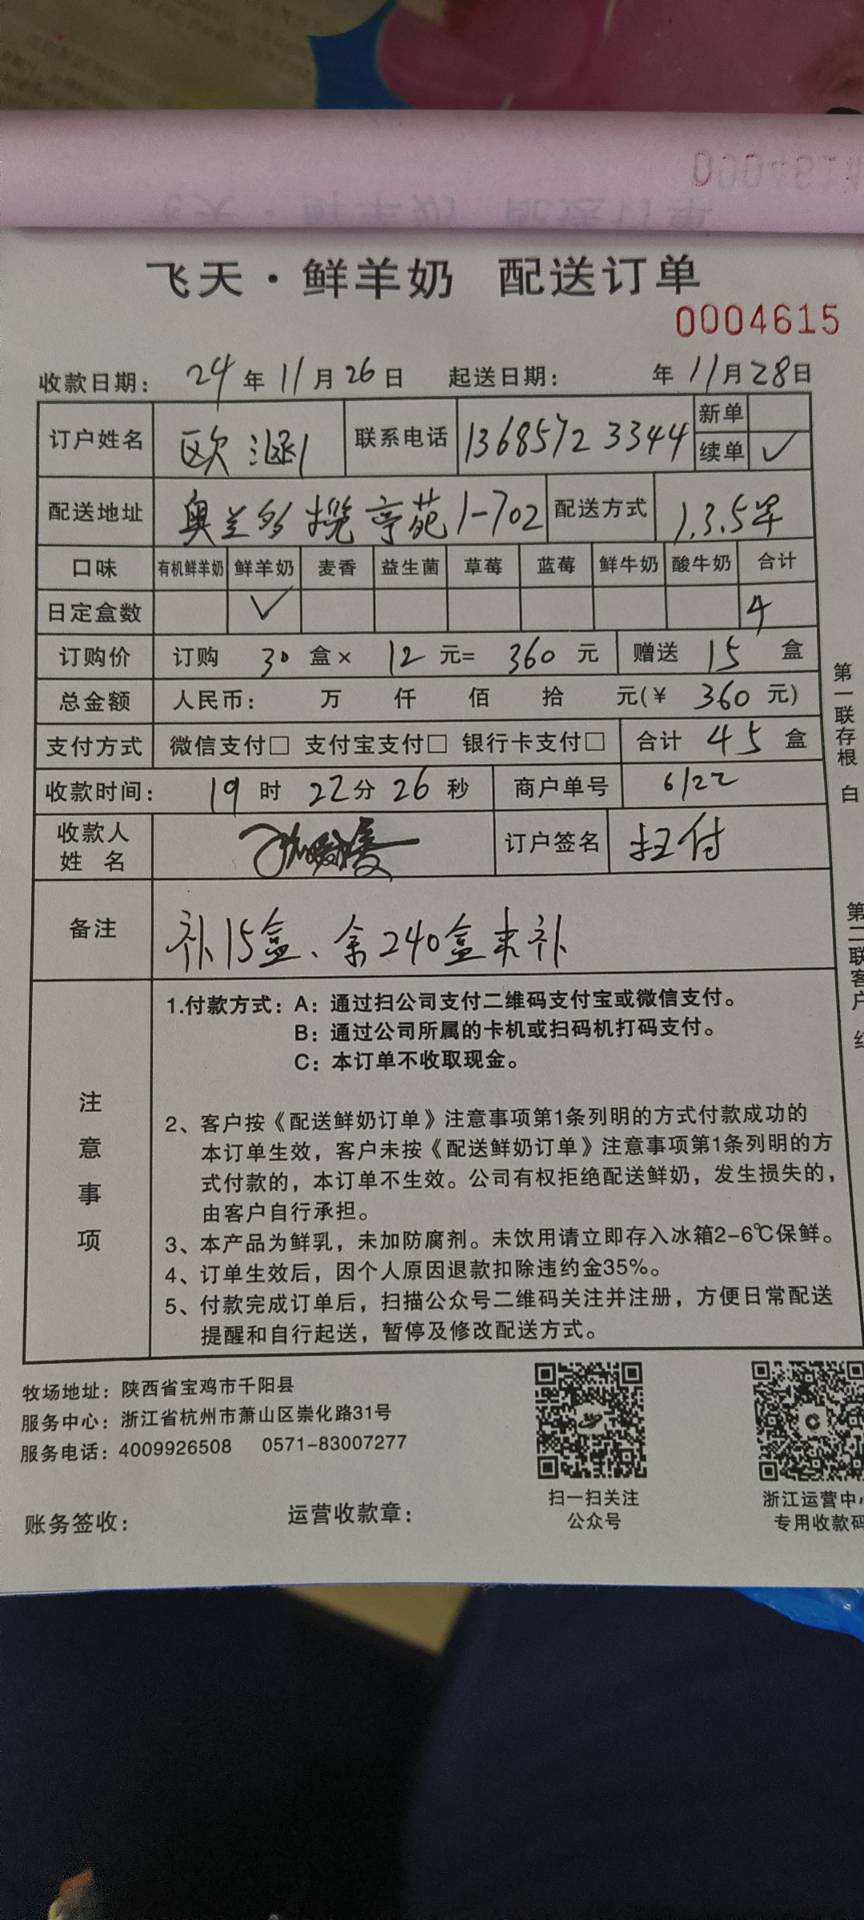 飞天·鲜羊奶 配送订单
0004615
收款日期: 24年11月26日 起送日期: 年11月28日
订户姓名 欧 联系电话 13685723344 新单
续单 ✓
配送地址 奥兰多揽亭苑1-702 配送方式 1.3.5早
口味 有机鲜羊奶 鲜羊奶 麦香 益生菌 草莓 蓝莓 鲜牛奶 酸牛奶 合计
日定盒数 ✓ 4
订购价 订购 30 盒× 12 元= 360 元 赠送 15 盒
总金额 人民币: 万 仟 佰 拾 元(¥ 360 元)
支付方式 微信支付□ 支付宝支付□ 银行卡支付□ 合计 45 盒
收款时间: 19 时 22 分 26 秒 商户单号 6122
收款人
姓 名 订户签名 扫付
备注 补15盒、余240盒未补
注意事项
1.付款方式: A: 通过扫公司支付二维码支付宝或微信支付。
B: 通过公司所属的卡机或扫码机打码支付。
C: 本订单不收取现金。
2、客户按《配送鲜奶订单》注意事项第1条列明的方式付款成功的
本订单生效，客户未按《配送鲜奶订单》注意事项第1条列明的方
式付款的，本订单不生效。公司有权拒绝配送鲜奶，发生损失的，
由客户自行承担。
3、本产品为鲜乳，未加防腐剂。未饮用请立即存入冰箱2-6℃保鲜。
4、订单生效后，因个人原因退款扣除违约金35%。
5、付款完成订单后，扫描公众号二维码关注并注册，方便日常配送
提醒和自行起送，暂停及修改配送方式。
第一联存根 白
第二联客户 红
牧场地址: 陕西省宝鸡市千阳县
服务中心: 浙江省杭州市萧山区崇化路31号
服务电话: 4009926508 0571-83007277
扫一扫关注
公众号
浙江运营中
专用收款码
账务签收: 运营收款章: